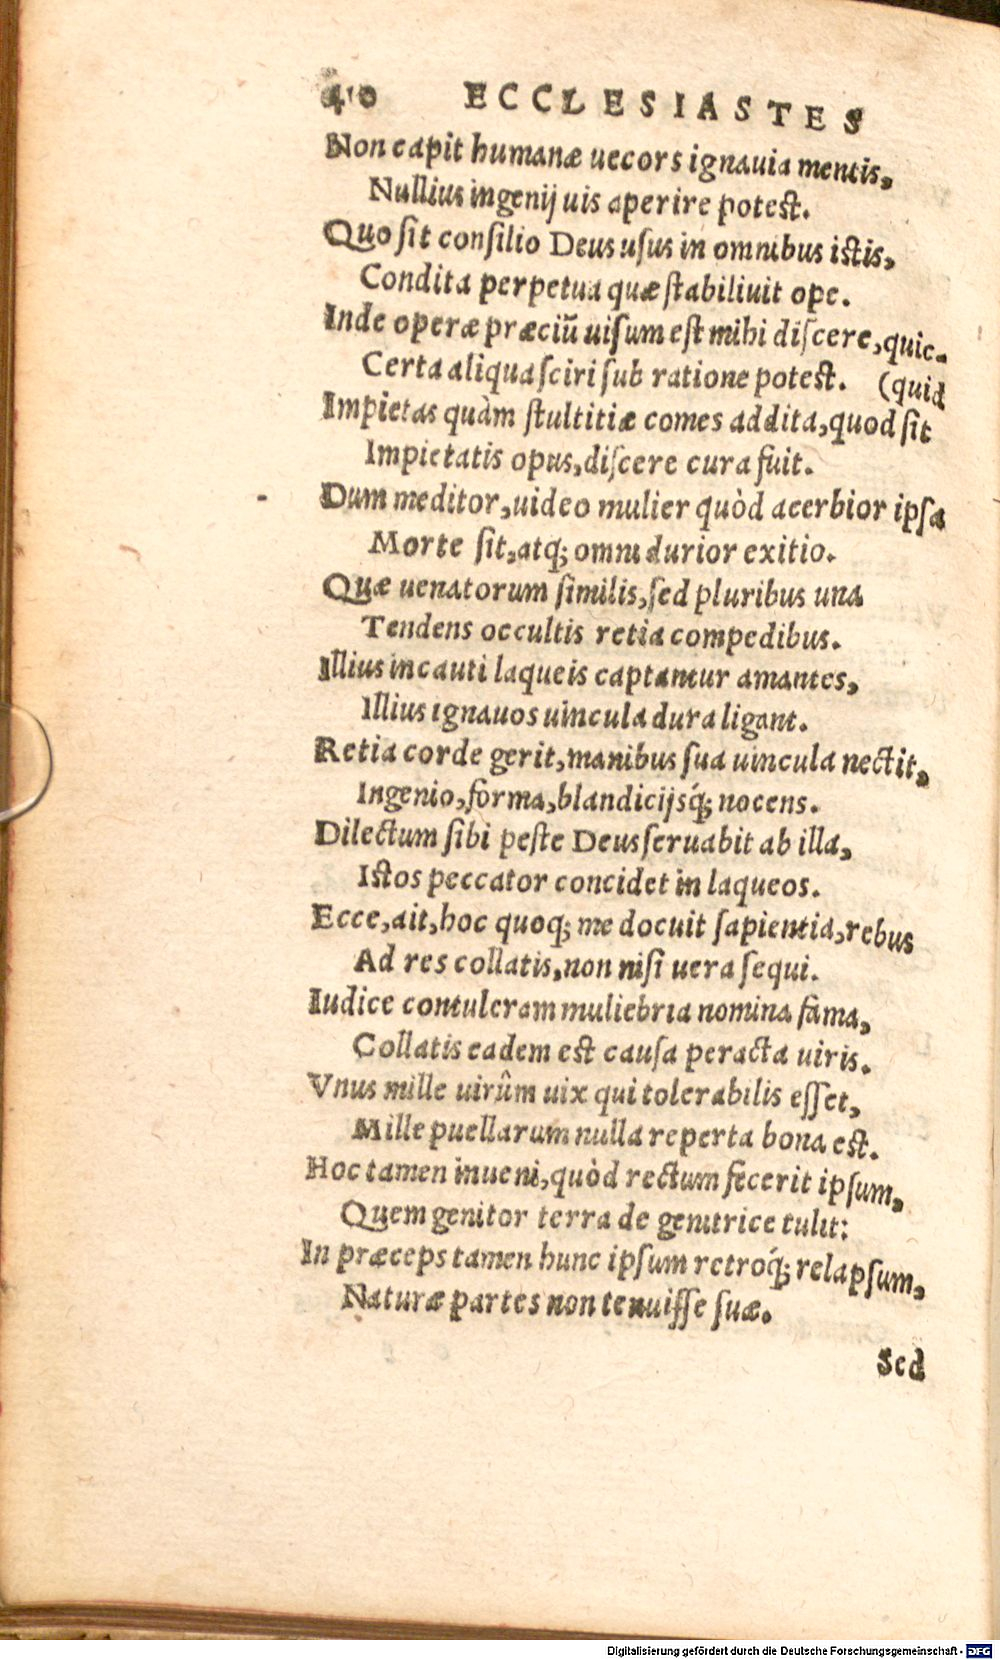 40 ECCLESIASTES
Non capit humanæ uecors ignauia mentis,
Nullius ingenij uis aperire potest.
Quo sit consilio Deus usus in omnibus istis,
Condita perpetua quæ stabiliuit ope.
Inde operæ præciũ uisum est mihi discere, quic-
Certa aliqua sciri sub ratione potest. (quid
Impietas quàm stultitiæ comes addita, quod sit
Impietatis opus, discere cura fuit.
Dum meditor, uideo mulier quòd acerbior ipsa
Morte sit, atq; omni durior exitio.
Quæ uenatorum similis, sed pluribus una
Tendens occultis retia compedibus.
Illius incauti laqueis captantur amantes,
Illius ignauos uincula dura ligant.
Retia corde gerit, manibus sua uincula nectit,
Ingenio, forma, blandicijsq́; nocens.
Dilectum sibi peste Deus seruabit ab illa,
Istos peccator concidet in laqueos.
Ecce, ait, hoc quoq; me docuit sapientia, rebus
Ad res collatis, non nisi uera sequi.
Iudice contuleram muliebria nomina fama,
Collatis eadem est causa peracta uiris.
Vnus mille uirûm uix qui tolerabilis esset,
Mille puellarum nulla reperta bona est.
Hoc tamen inueni, quòd rectum fecerit ipsum,
Quem genitor terra de genitrice tulit:
In præceps tamen hunc ipsum retroq́; relapsum,
Naturæ partes non tenuisse suæ.
Sed
Digitalisierung gefördert durch die Deutsche Forschungsgemeinschaft - DFG